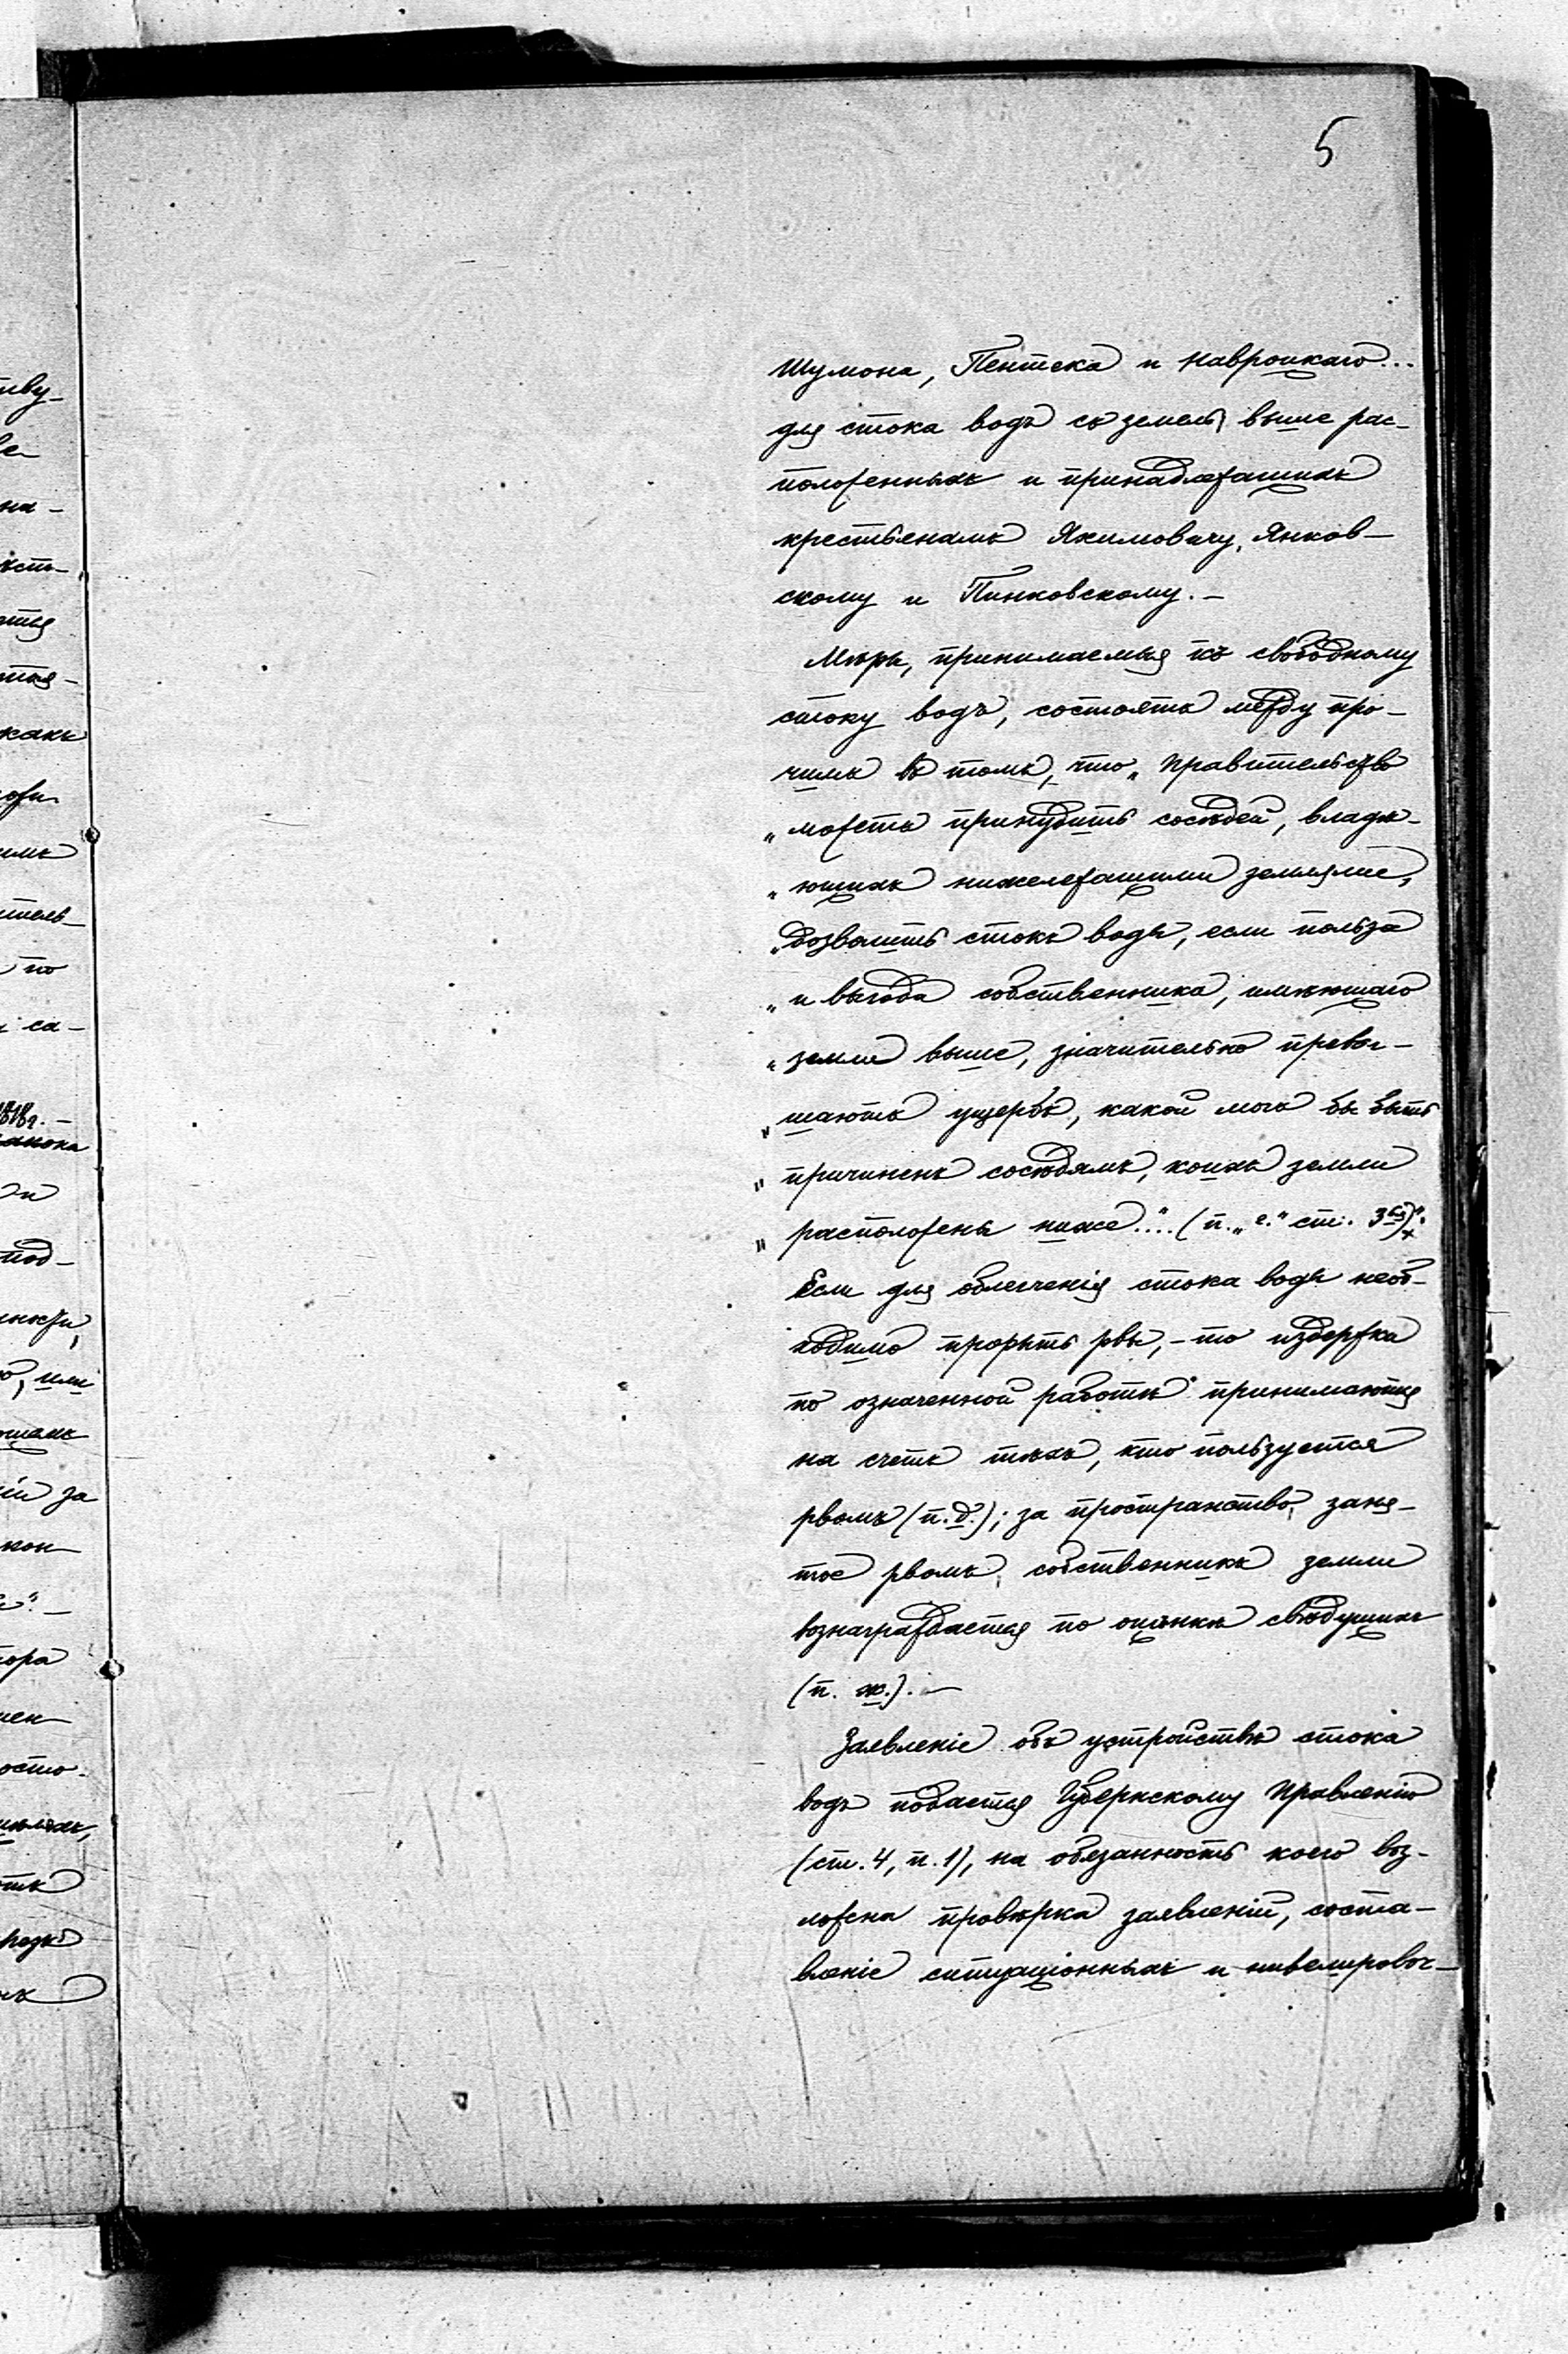 5
Шумона, Пентека и Навроцкаго...
для стока водъ съ земель выше рас-
положенныхъ и принадлежащихъ
крестьянамъ Якимовичу, Янков-
скому и Пинковскому.-
Мѣры, принимаемыя къ свободному
стоку водъ, состоятъ между про-
чимъ въ томъ, что „Правительство
„можетъ принудить сосѣдей, владѣ-
„ющихъ нижележащими землями,
„дозволить стокъ воды, если польза
„и выгода собственника, имѣющаго
„земли выше, значительно превы-
„шаютъ ущербъ, какой могъ бы быть
„причиненъ сосѣдямъ, коихъ земли
„расположены ниже..." (п. „г." ст. 3ей).
Если для облегченія стока воды необ-
ходимо прорыть рвы,-то издержка
по означенной работѣ принимаются
на счетъ тѣхъ, кто пользуется
рвомъ (п. д.); за пространство, заня-
тое рвомъ, собственникъ земли
вознаграждается по оцѣнкѣ свѣдущихъ
(п. ж.).-
Заявленіе объ устройствѣ стока
водъ подается Губернскому Правленію
(ст. 4, п. 1), на обязанность коего воз-
ложена провѣрка заявленій, соста-
вленіе ситуаціонныхъ и нивелировоч-
ству-
на-
какъ
по
са-
и
под-
или
за
кон